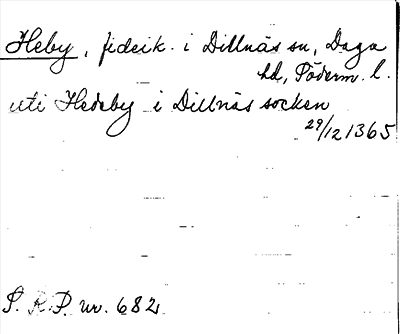 Heby, fideik. i Dillnäs sn, Daga
hd, Söderm. l.
uti Hedeby i Dillnäs socken
29/12 1365
S. R. P. nr. 682